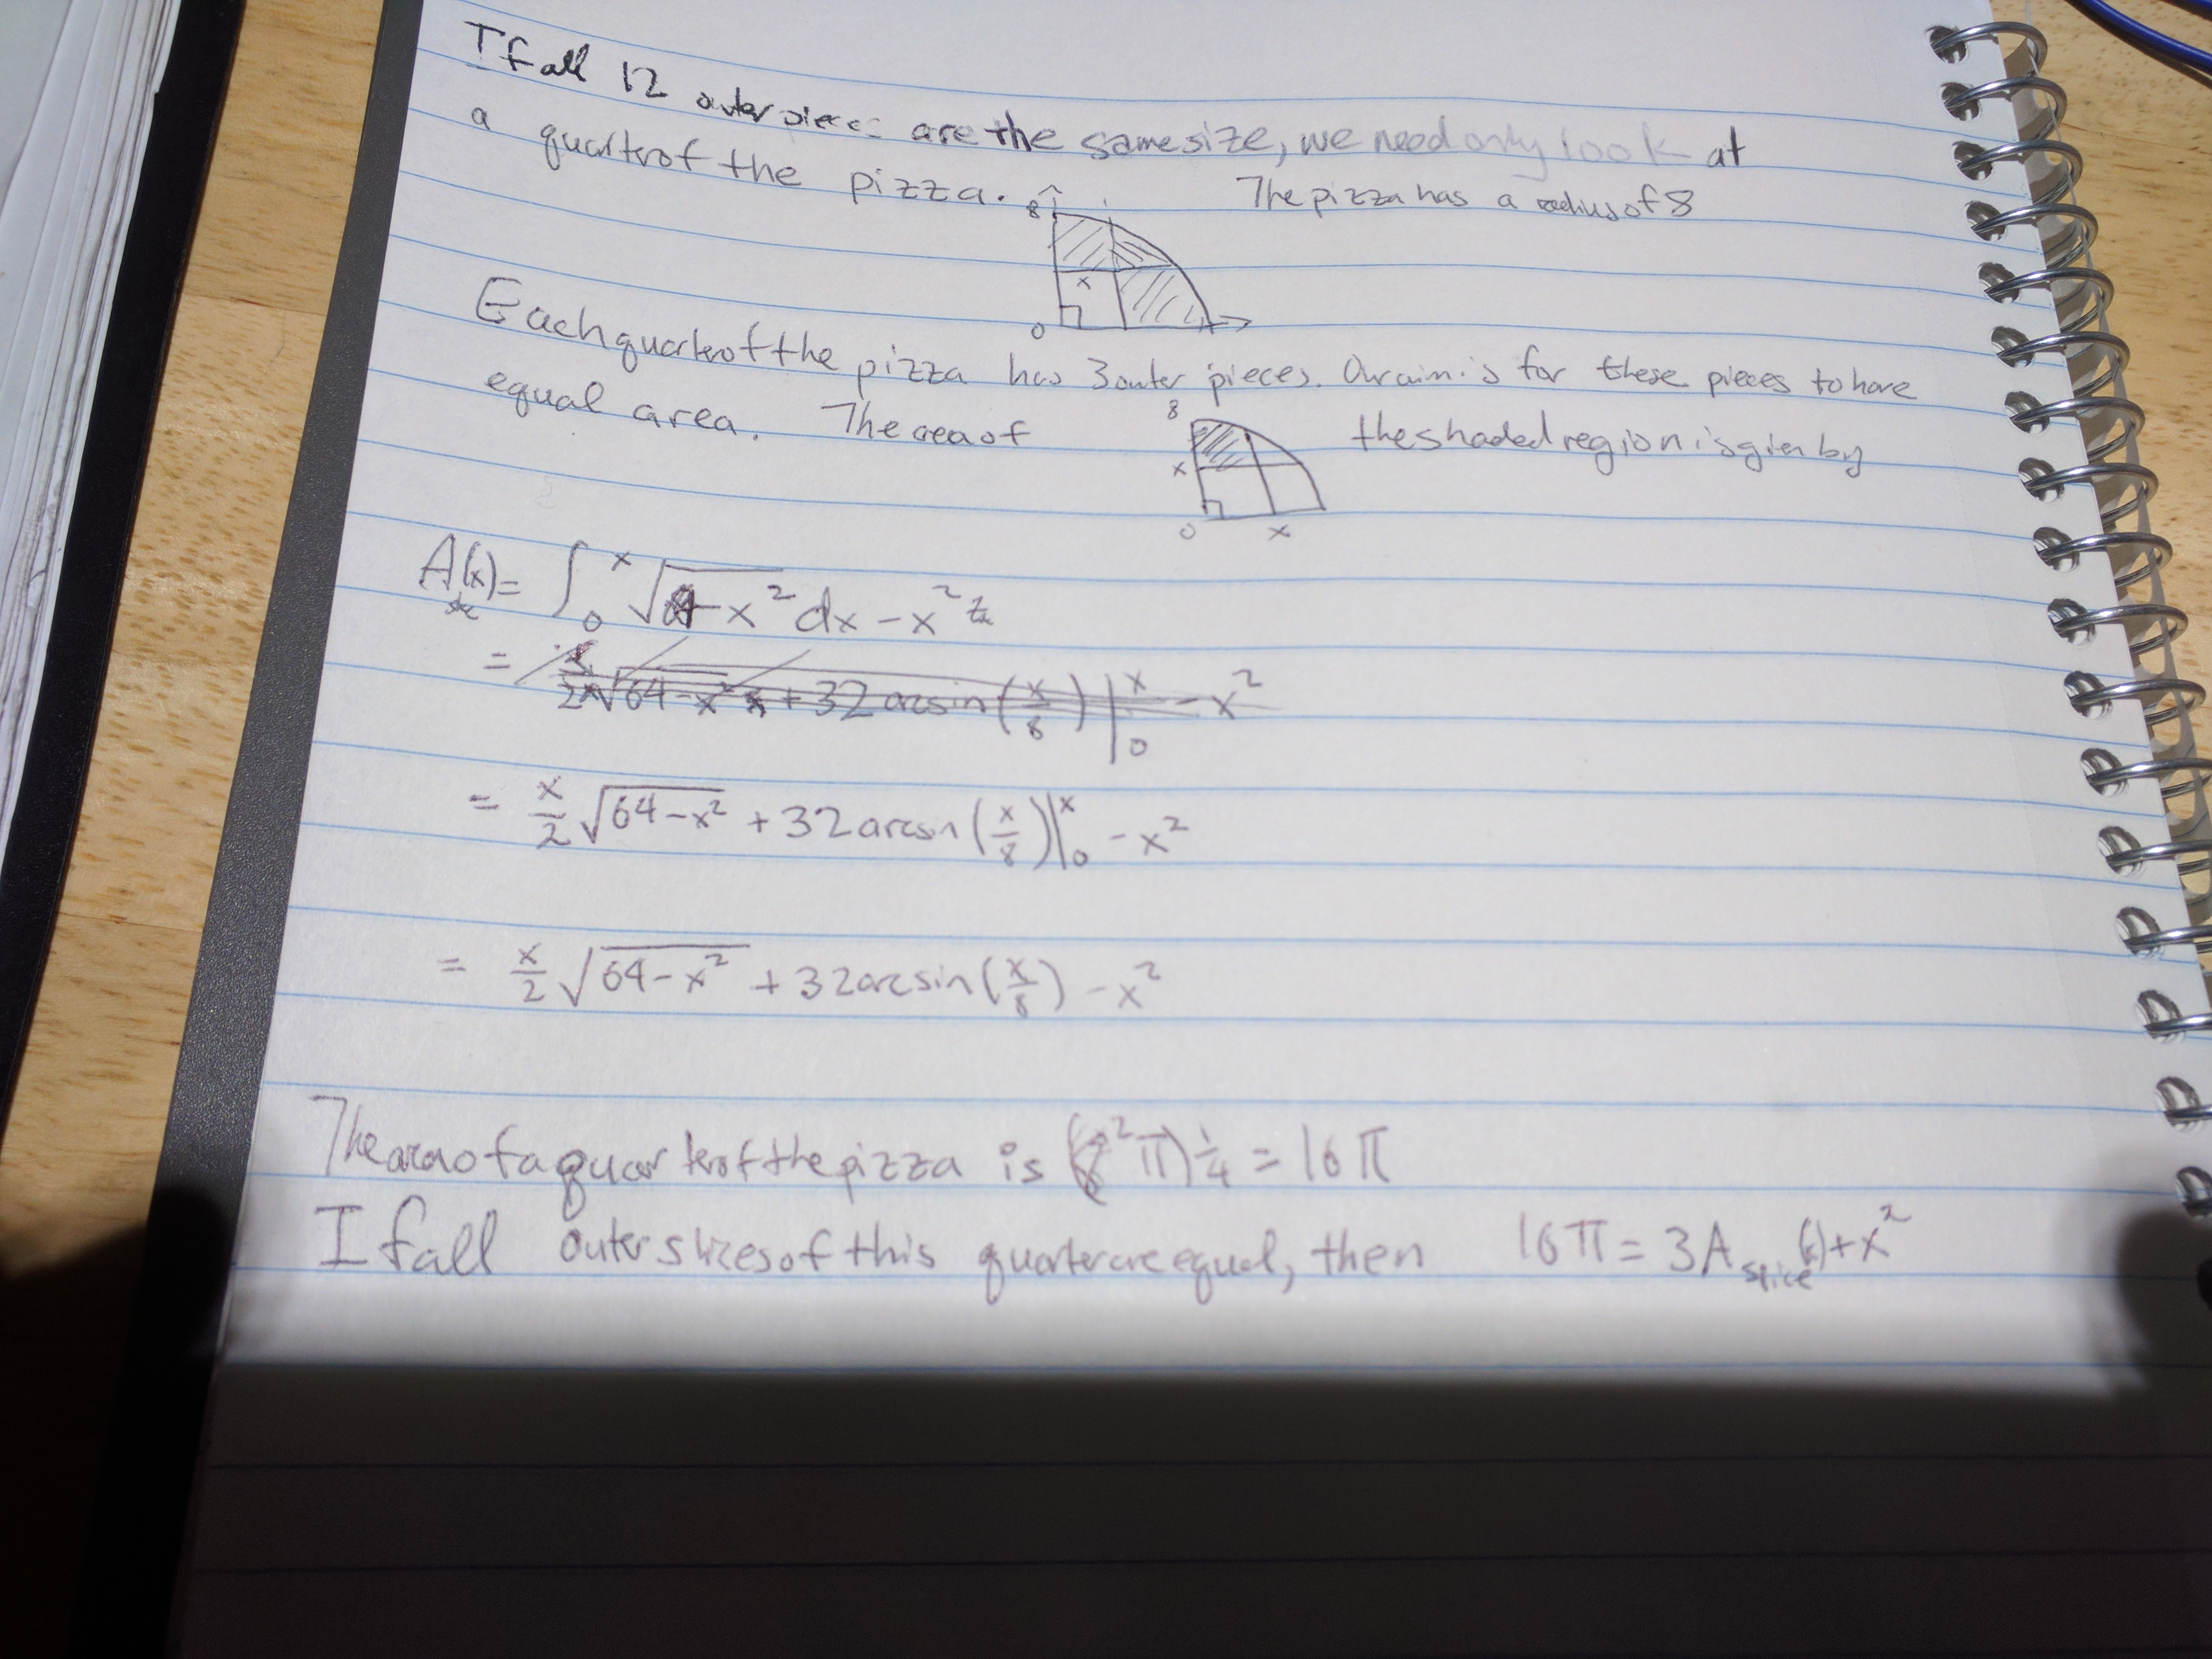 If all 12 outer pieces are the same size, we need only look at
a quarter of the pizza. The pizza has a radius of 8
8
x
0
Each quarter of the pizza has 3 outer pieces. Our aim is for these pieces to have
equal area. The area of the shaded region is given by
8
x
0 x
A(x) = ∫₀ˣ √ - x² dx - x²
= √64-x² + 32 arcsin(x/8)|₀ˣ - x²
= x/2 √64-x² + 32 arcsin(x/8)|₀ˣ - x²
= x/2 √64-x² + 32 arcsin(x/8) - x²
The area of a quarter of the pizza is (8²π) 1/4 = 16π
If all outer slices of this quarter are equal, then 16π = 3A slice (x) + x²